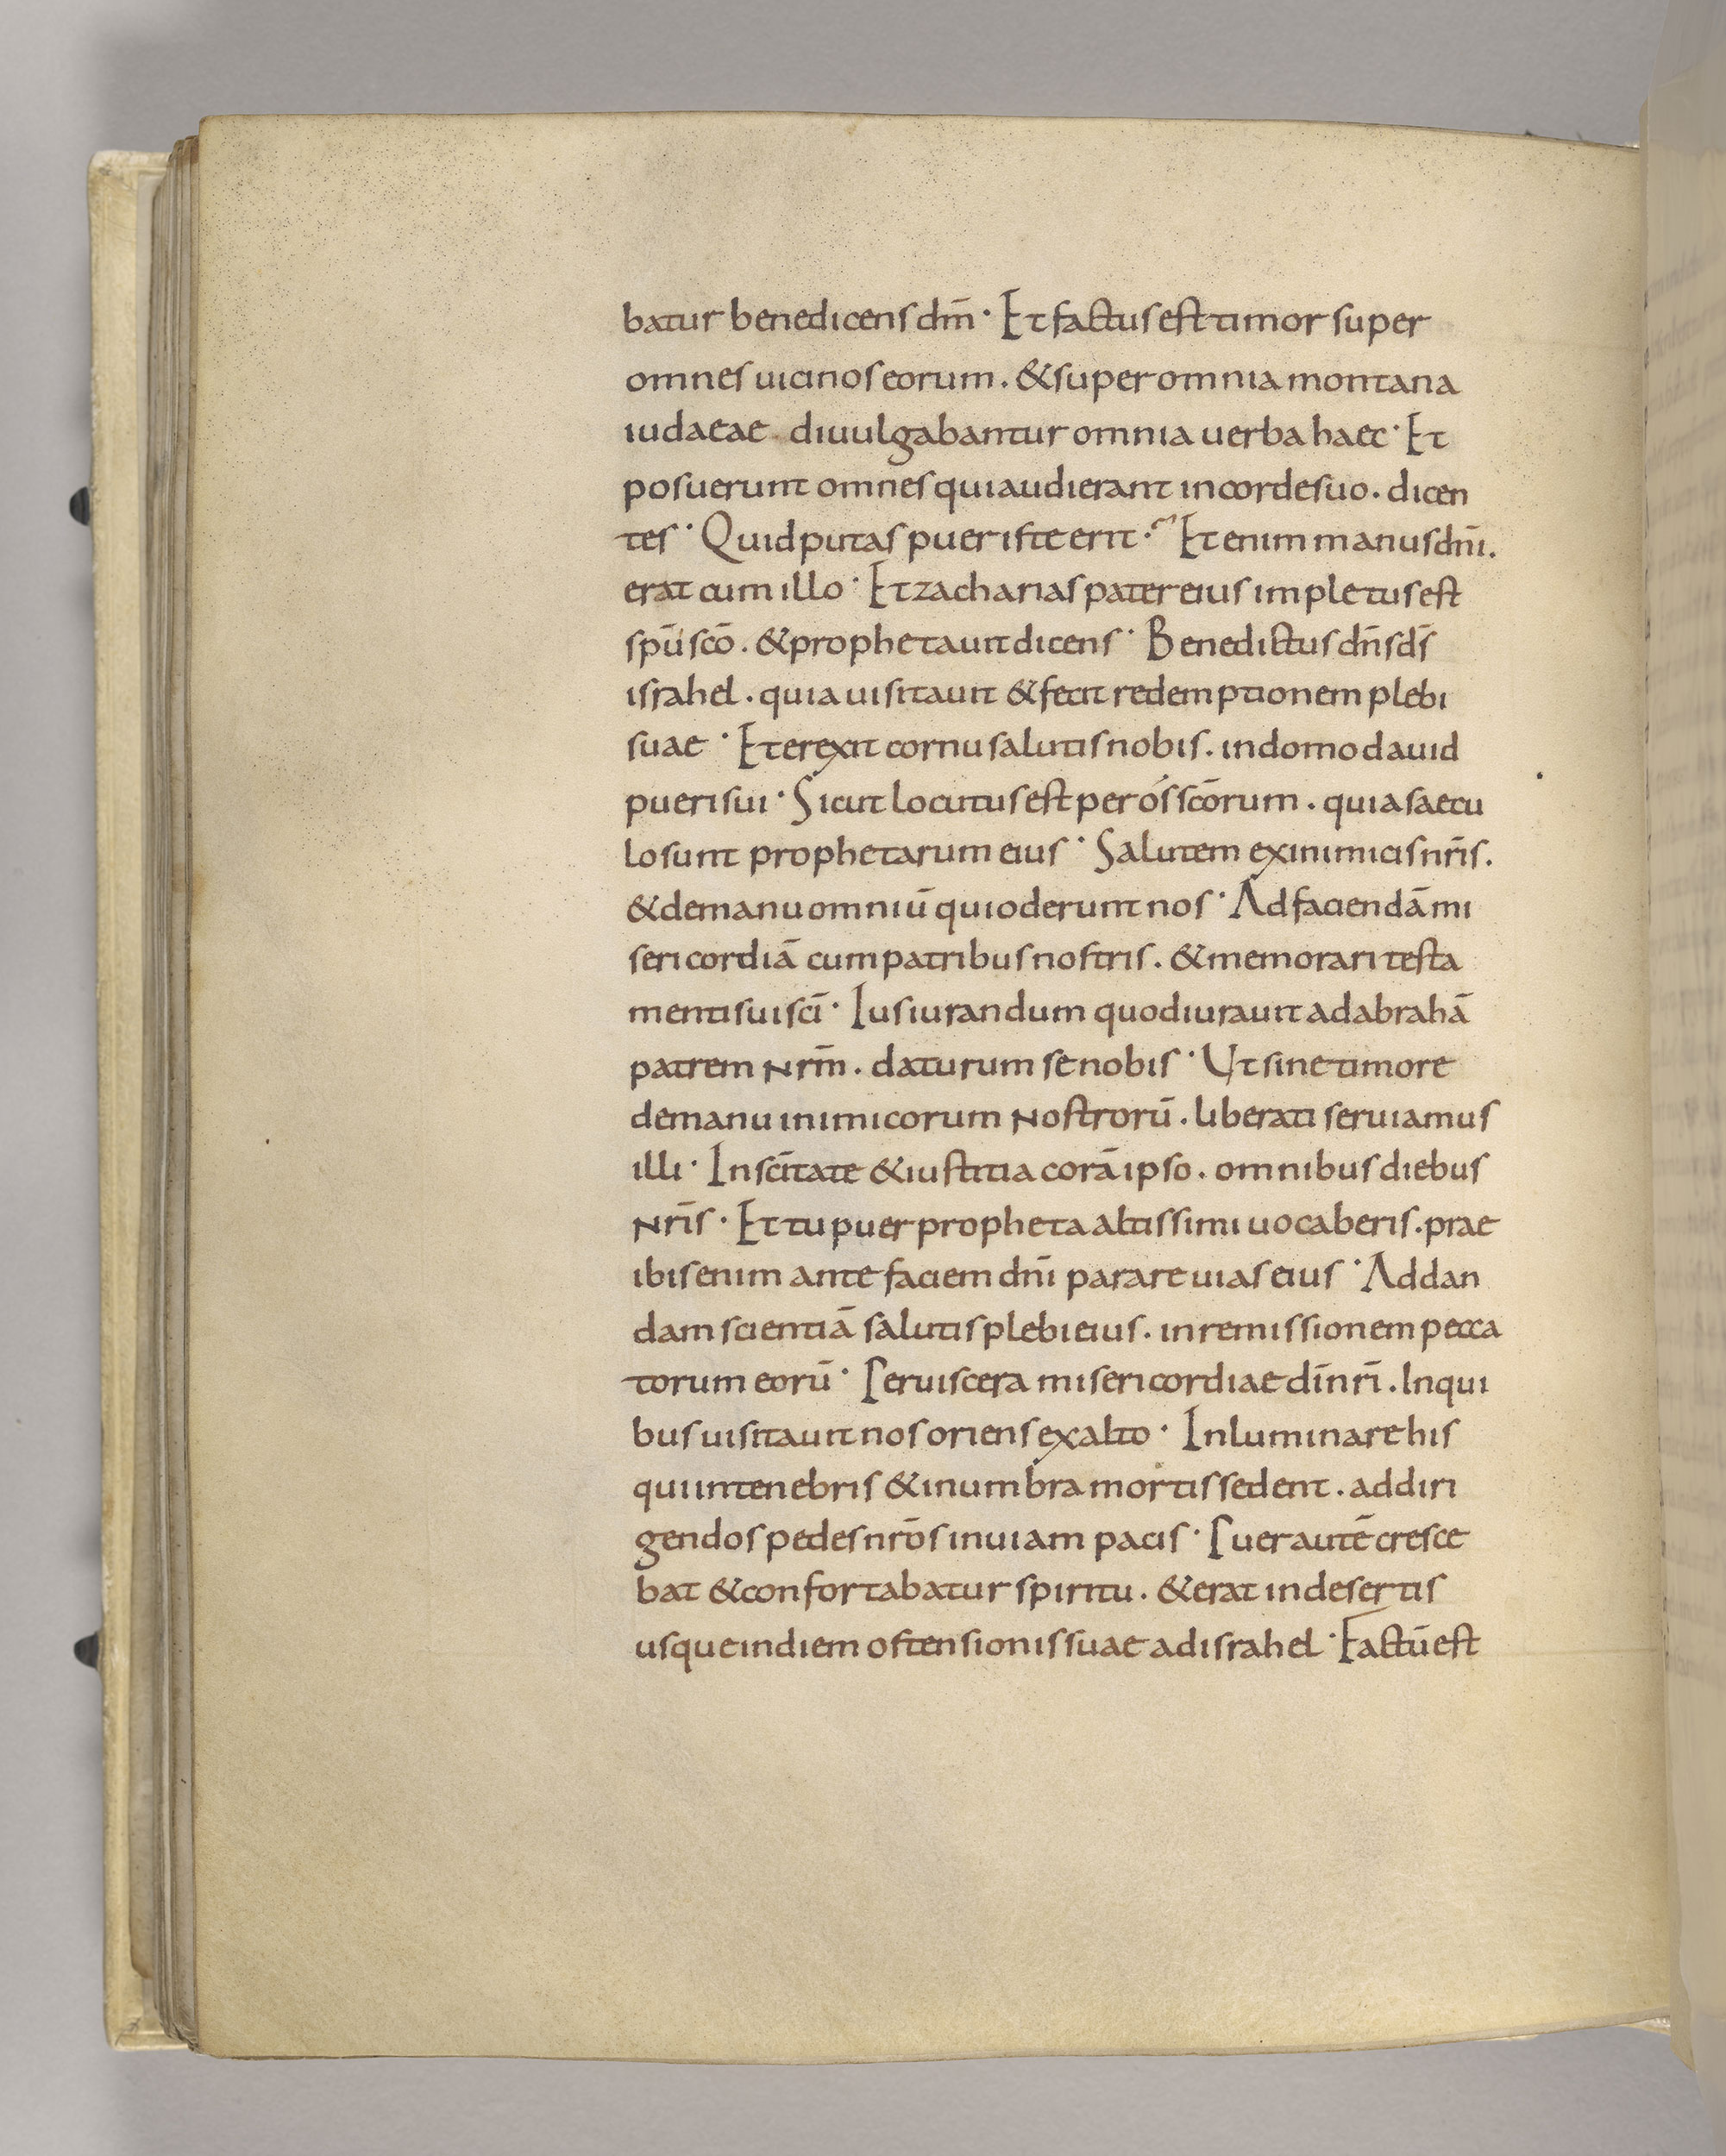 batur benedicens dm̄· Et factus est timor super
omnes uicinos eorum. & super omnia montana
iudaeae. diuulgabantur omnia uerba haec· Et
posuerunt omnes qui audierant in corde suo. dicen
tes· Quid putas puer iste erit· Et enim manus dn̄i.
erat cum illo· Et zacharias pater eius impletus est
spū scō. & prophetauit dicens· Benedictus dn̄s ds̄
israhel. quia uisitauit & fecit redemptionem plebi
suae· Et erexit cornu salutis nobis. in domo dauid
pueri sui· Sicut locutus est per os scōrum. qui a saecu
lo sunt prophetarum eius· Salutem ex inimicis nr̄is.
& de manu omniū qui oderunt nos· Ad faciendā mi
sericordiā cum patribus nostris. & memorari testa
menti sui scī· Iusiurandum quod iurauit ad abrahā
patrem nrm̄. daturum se nobis· Ut sine timore
de manu inimicorum nostrorū. liberati seruiamus
illi· In scītate & iustitia corā ipso. omnibus diebus
nr̄is· Et tu puer propheta altissimi uocaberis. prae
ibis enim ante faciem dn̄i parare uias eius· Ad dan
dam scientiā salutis plebi eius. in remissionem pecca
torum eorū· Per uiscera misericordiae dī nrī. In qui
bus uisitauit nos oriens ex alto· Inluminare his
qui in tenebris & in umbra mortis sedent. ad diri
gendos pedes nrōs in uiam pacis· Puer autē cresce
bat & confortabatur spiritu. & erat in desertis
usque in diem ostensionis suae ad israhel· Factū est